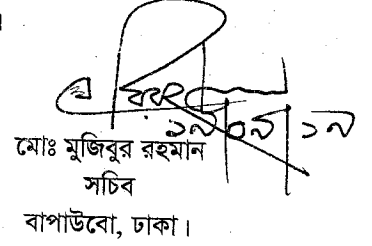 ১৯|০৯|১৯
মোঃ মুজিবুর রহমান
সচিব
বাপাউবো, ঢাকা।